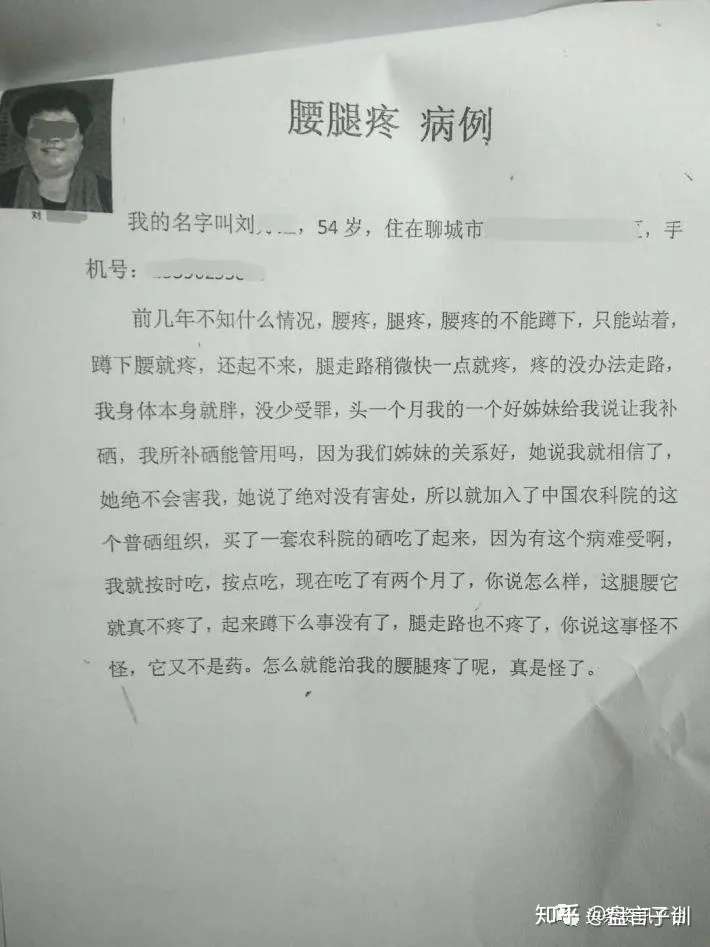 腰腿疼 病例
刘
我的名字叫刘，54岁，住在聊城市，手
机号：
前几年不知什么情况，腰疼，腿疼，腰疼的不能蹲下，只能站着，
蹲下腰就疼，还起不来，腿走路稍微快一点就疼，疼的没办法走路，
我身体本身就胖，没少受罪，头一个月我的一个好姊妹给我说让我补
硒，我所补硒能管用吗，因为我们姊妹的关系好，她说我就相信了，
她绝不会害我，她说了绝对没有害处，所以就加入了中国农科院的这
个普硒组织，买了一套农科院的硒吃了起来，因为有这个病难受啊，
我就按时吃，按点吃，现在吃了有两个月了，你说怎么样，这腿腰它
就真不疼了，起来蹲下么事没有了，腿走路也不疼了，你说这事怪不
怪，它又不是药。怎么就能治我的腰腿疼了呢，真是怪了。
知乎